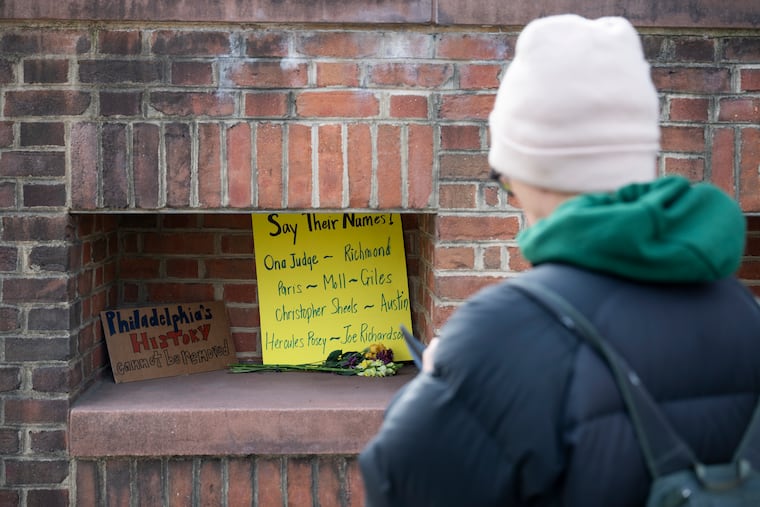 Say Their Names!
Ona Judge ~ Richmond
Paris ~ Moll ~ Giles
Christopher Sheels ~ Austin
Hercules Posey ~ Joe Richardson
Philadelphia's
HISTORY
cannot be removed